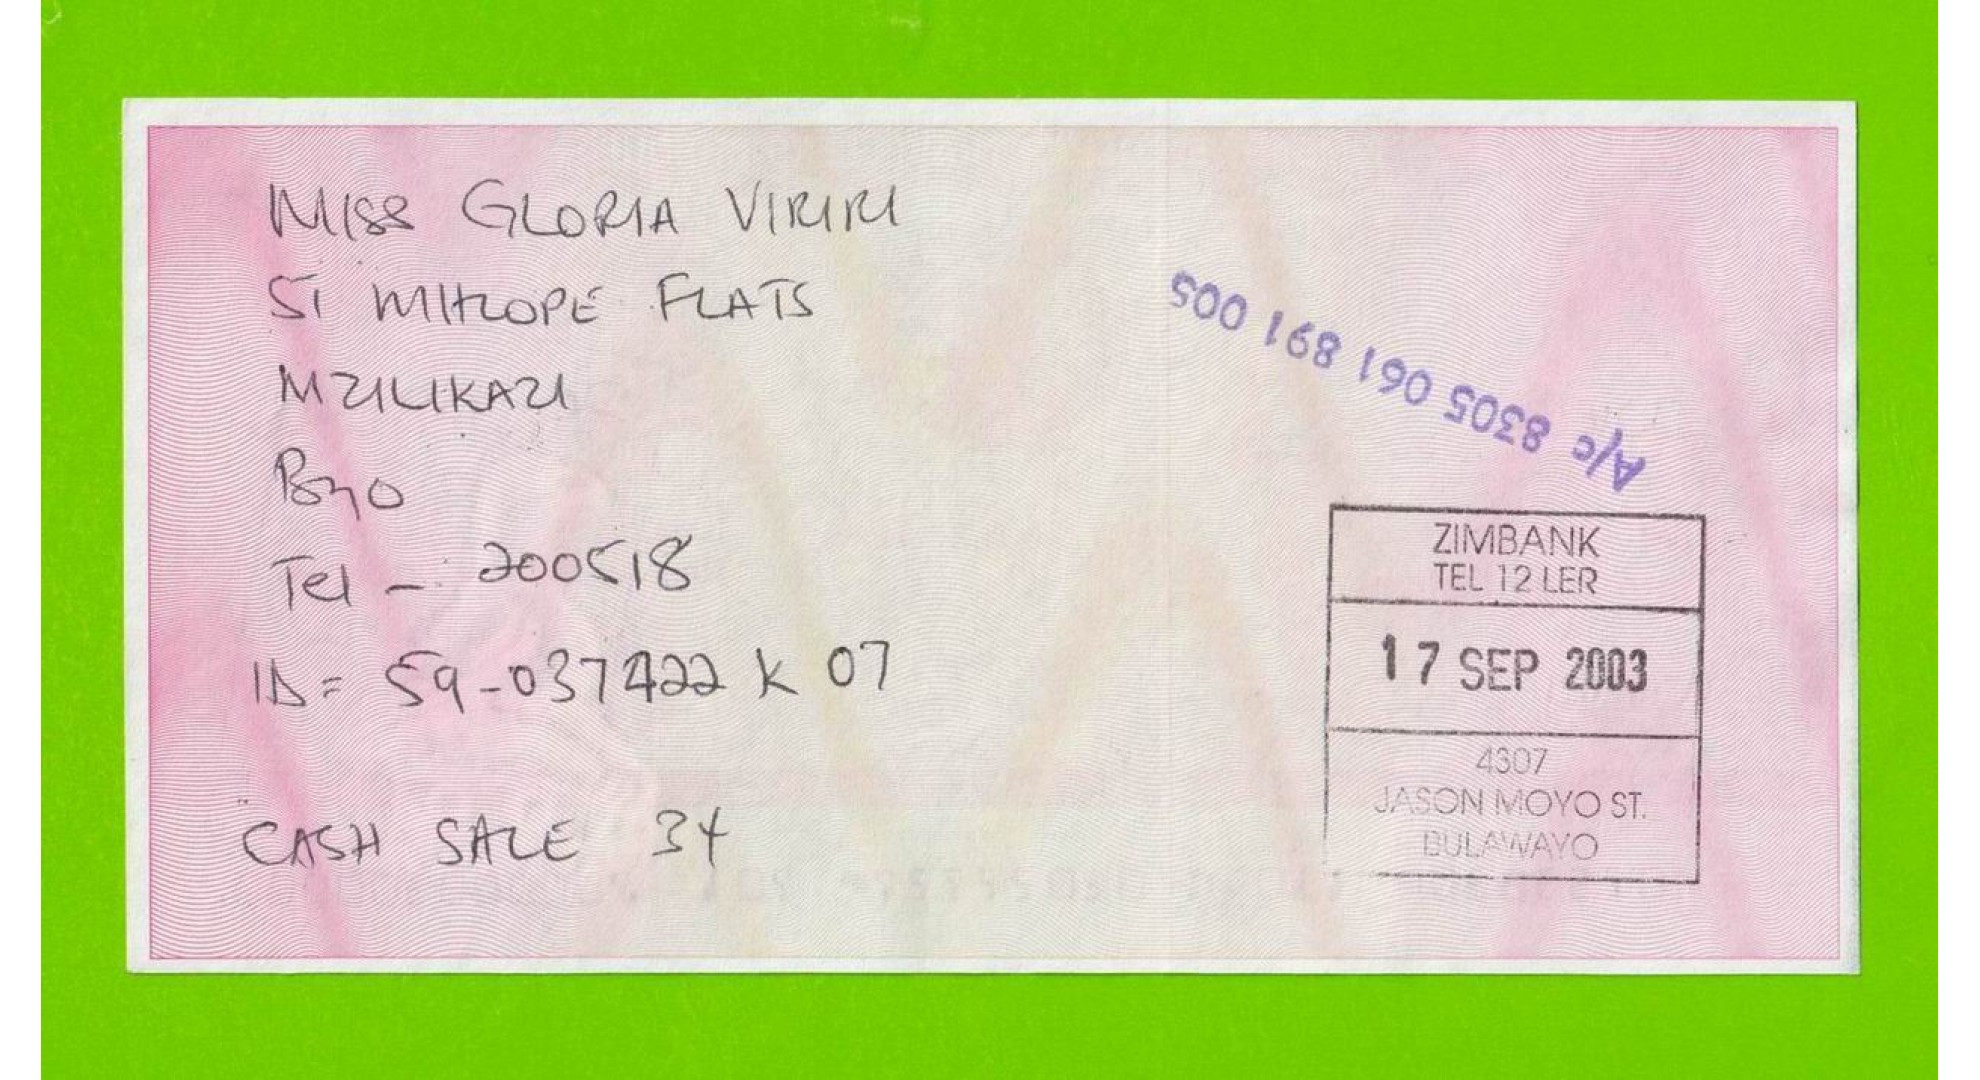 MISS GLORIA VIRIRI
51 MHLOPE FLATS
MZILIKAZI
Byo
Tel - 200518
ID = 59-037422 K 07
CASH SALE 34
A/c 8305 061 891 005
ZIMBANK
TEL 12 LER
17 SEP 2003
4307
JASON MOYO ST.
BULAWAYO